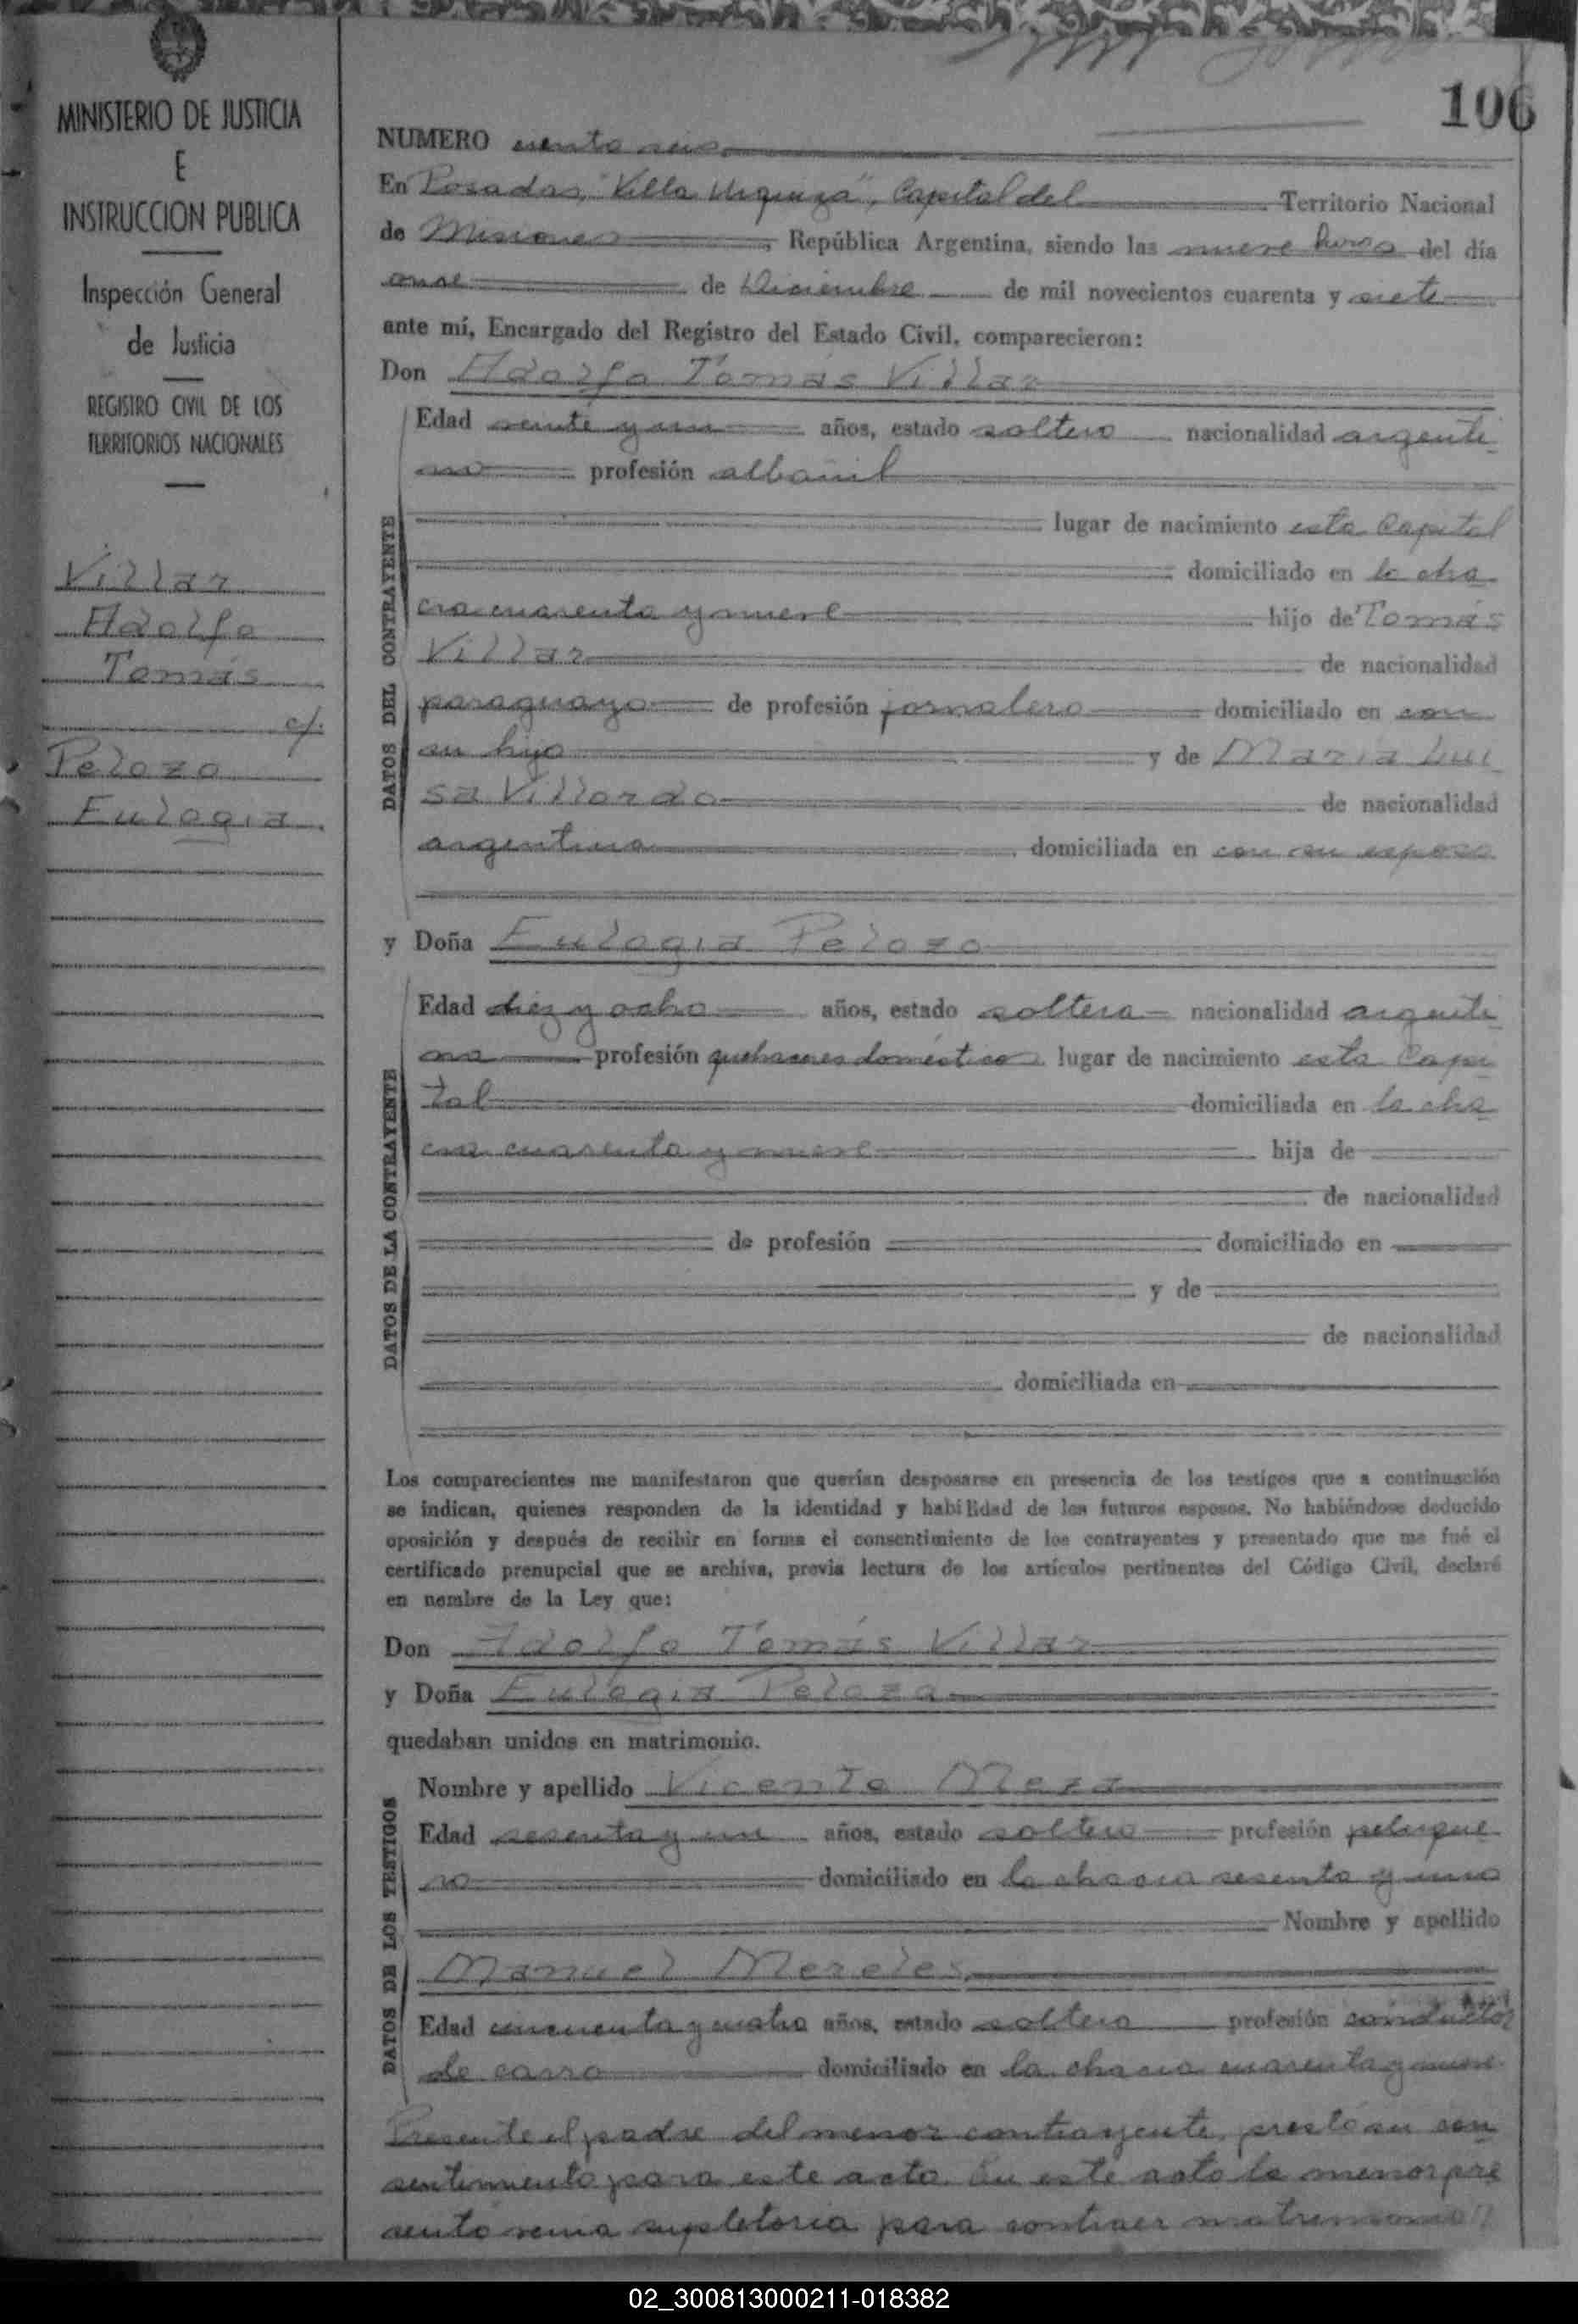 MINISTERIO DE JUSTICIA
E
INSTRUCCION PUBLICA
Inspección General
de Justicia
REGISTRO CIVIL DE LOS
TERRITORIOS NACIONALES
Villar
Adolfo
Tomás
c/.
Pelozo
Eulogia
106
NUMERO ciento seis
En Posadas, "Villa Urquiza", Capital del Territorio Nacional
de Misiones República Argentina, siendo las nueve horas del día
once de Diciembre de mil novecientos cuarenta y siete
ante mí, Encargado del Registro del Estado Civil, comparecieron:
Don Adolfo Tomás Villar
DATOS DEL CONTRAYENTE
Edad veinte y un años, estado soltero nacionalidad argenti
no profesión albañil
lugar de nacimiento esta Capital
domiciliado en la cha
cra cuarenta y nueve hijo de Tomás
Villar de nacionalidad
paraguayo de profesión jornalero domiciliado en con
su hijo y de María Lui
sa Villordo de nacionalidad
argentina domiciliada en con su esposo
y Doña Eulogia Pelozo
DATOS DE LA CONTRAYENTE
Edad diez y ocho años, estado soltera nacionalidad argenti
na profesión quehaceres domésticos lugar de nacimiento esta Capi
tal domiciliada en la cha
cra cuarenta y nueve hija de
de nacionalidad
de profesión domiciliado en
y de
de nacionalidad
domiciliada en
Los comparecientes me manifestaron que querían desposarse en presencia de los testigos que a continuación
se indican, quienes responden de la identidad y habilidad de los futuros esposos. No habiéndose deducido
oposición y después de recibir en forma el consentimiento de los contrayentes y presentado que me fué el
certificado prenupcial que se archiva, previa lectura de los artículos pertinentes del Código Civil, declaré
en nombre de la Ley que:
Don Adolfo Tomás Villar
y Doña Eulogia Pelozo
quedaban unidos en matrimonio.
DATOS DE LOS TESTIGOS
Nombre y apellido Vicente Meza
Edad sesenta y un años, estado soltero profesión peluque
ro domiciliado en la chacra sesenta y uno
Nombre y apellido
Manuel Mereles
Edad cincuenta y cuatro años, estado soltero profesión conductor
de carro domiciliado en la chacra cuarenta y nueve.
Presente el padre del menor contrayente, prestó su con
sentimiento para este acto. En este acto la menor pre
sentó venia supletoria para contraer matrimonio
02_300813000211-018382